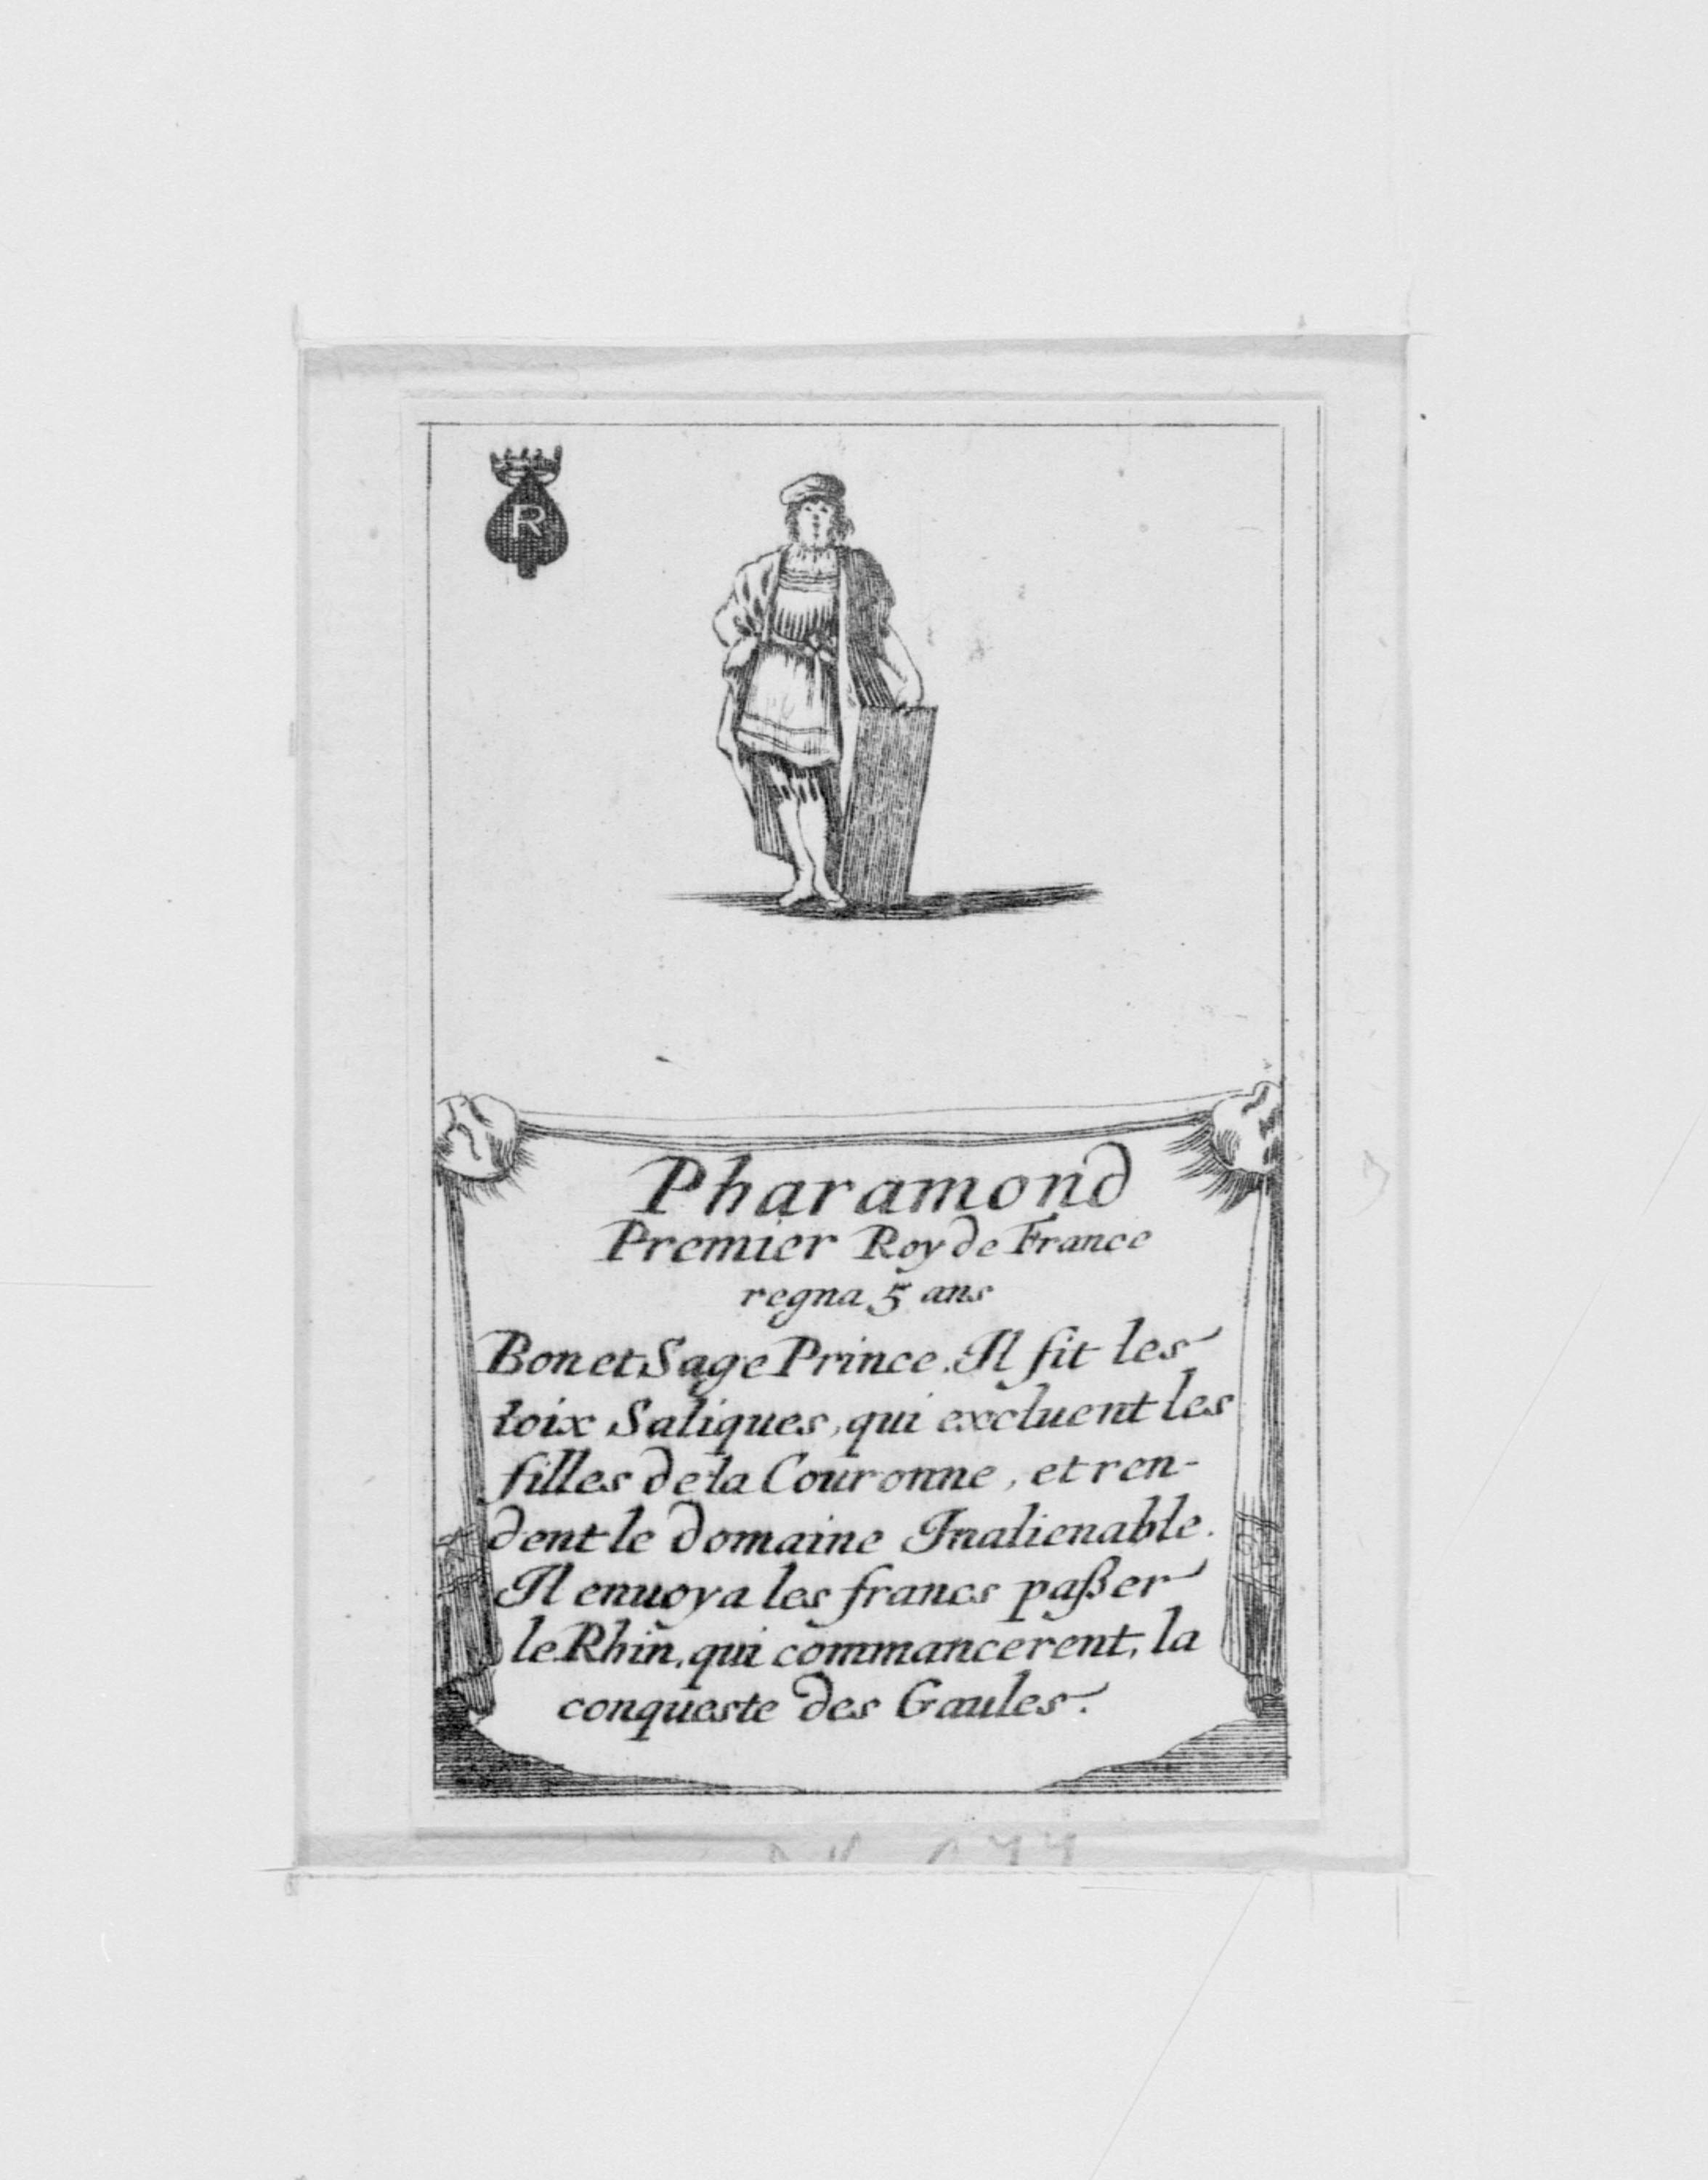 R
Pharamond
Premier Roy de France
regna 5 ans
Bon et Sage Prince. Il fit les
loix Saliques, qui excluent les
filles de la Couronne, et ren-
dent le domaine Inalienable.
Il enuoya les francs paßer
le Rhin, qui commancerent, la
conqueste des Gaules.